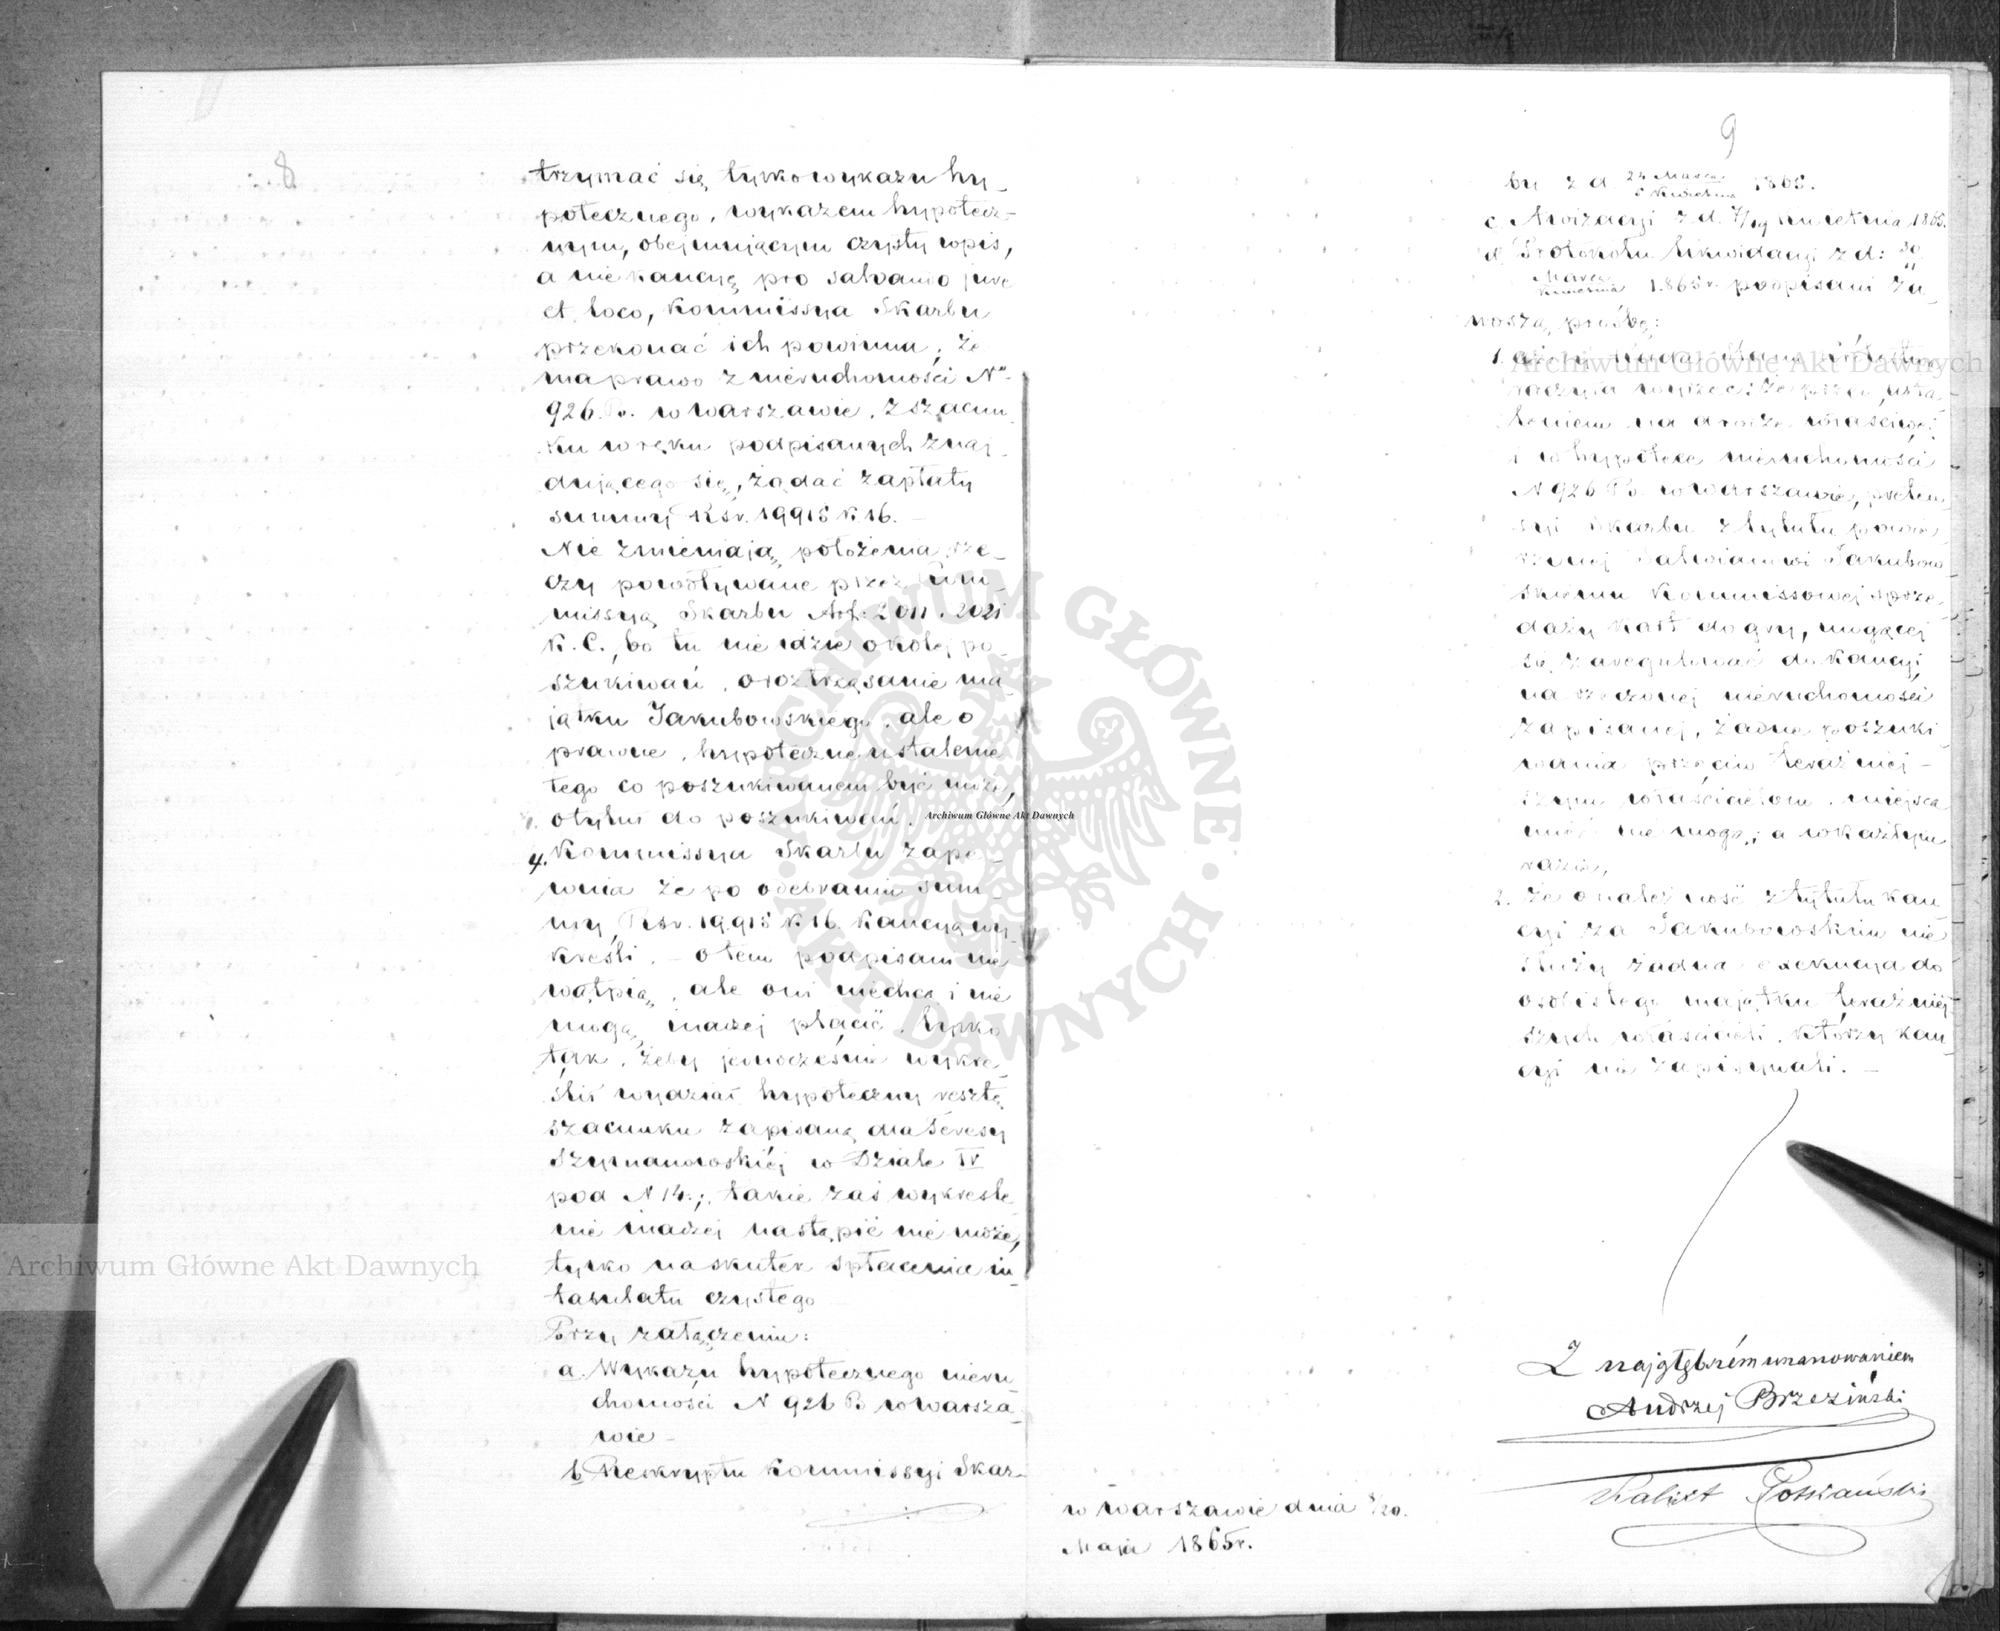 8
trzymać się tylko wykazu hy-
potecznego, wykazem hypotecz-
nym, obejmującym czysty wpis,
a nie kaucyą pro salvando jure
et loco, Kommissya Skarbu
przekonać ich powinna, że
ma prawo z nieruchomości No
926. B. w Warszawie, z szacun-
ku w ręku podpisanych znaj-
dującego się, żądać zapłaty
summy Rsr. 19915 k 16. –
Nie zmieniają położenia rze-
czy powoływane przez Kom-
missyą Skarbu Art: 2011. 2021
K. C., bo tu nie idzie o kolej po-
szukiwań, o roztrząsanie ma-
jątku Jakubowskiego, ale o
prawne, hypoteczne ustalenie
tego co poszukiwanem być może,
o tytuł do poszukiwań.
4. Kommissya Skarbu zape-
wnia że po odebraniu sum-
my Rsr. 19,915 k 16. kaucyą wy-
kreśli. – O tem podpisani nie
wątpią, ale oni niechcą i nie
mogą inaczej płacić, tylko
tak, żeby jednocześnie wykre-
ślił wydział hypoteczny resztę
szacunku zapisaną dla Teresy
Szymanowskiej w Dziale IV
pod N 14.; takie zaś wykreśle-
nie inaczej nastąpić nie może,
tylko na skutek spłacenia in-
tabulatu czystego
Przy załączeniu:
a. Wykazu hypotecznego nieru-
chomości N 926 B w Warsza-
wie –
b Reskryptu Kommissyi Skar-
9
bu z d. 24 Marca / 5 Kwietnia 1865.
c Awizacyi z d. 7/19 Kwietnia 1865.
d. Protokołu likwidacyi z d: 30
Marca / Kwietnia 1865 r. podpisani za-
noszą prośbę:
1. ażeby
raczyła wyrzec: że przed usta-
leniem na drodze właściwej
i w hypotece nieruchomości
N 926 B. w Warszawie, preten-
syi Skarbu z tytułu powie-
rzonej Jakubow-
skiemu Kommissowej sprze-
daży kart do gry, mogącej
się zaregulować do kaucyi
na rzeczonej nieruchomości
zapisanej, żadne poszuki-
wania przeciw teraźniej-
szym właścicielom, miejsca
mieć nie mogą; a w każdym
razie,
2. że o należność z tytułu kau-
cyi za Jakubowskim nie
służy żadna exekucya do
osobistego majątku teraźniej-
szych właścicieli, którzy kau-
cyi nie zapisywali. –
Z najgłębszém uszanowaniem
Andrzej Brzeziński
Kalixt
w Warszawie dnia 8/20.
Maja 1865 r.
Archiwum Główne Akt Dawnych
Archiwum Główne Akt Dawnych
Archiwum Główne Akt Dawnych
· ARCHIWUM GŁÓWNE · AKT DAWNYCH